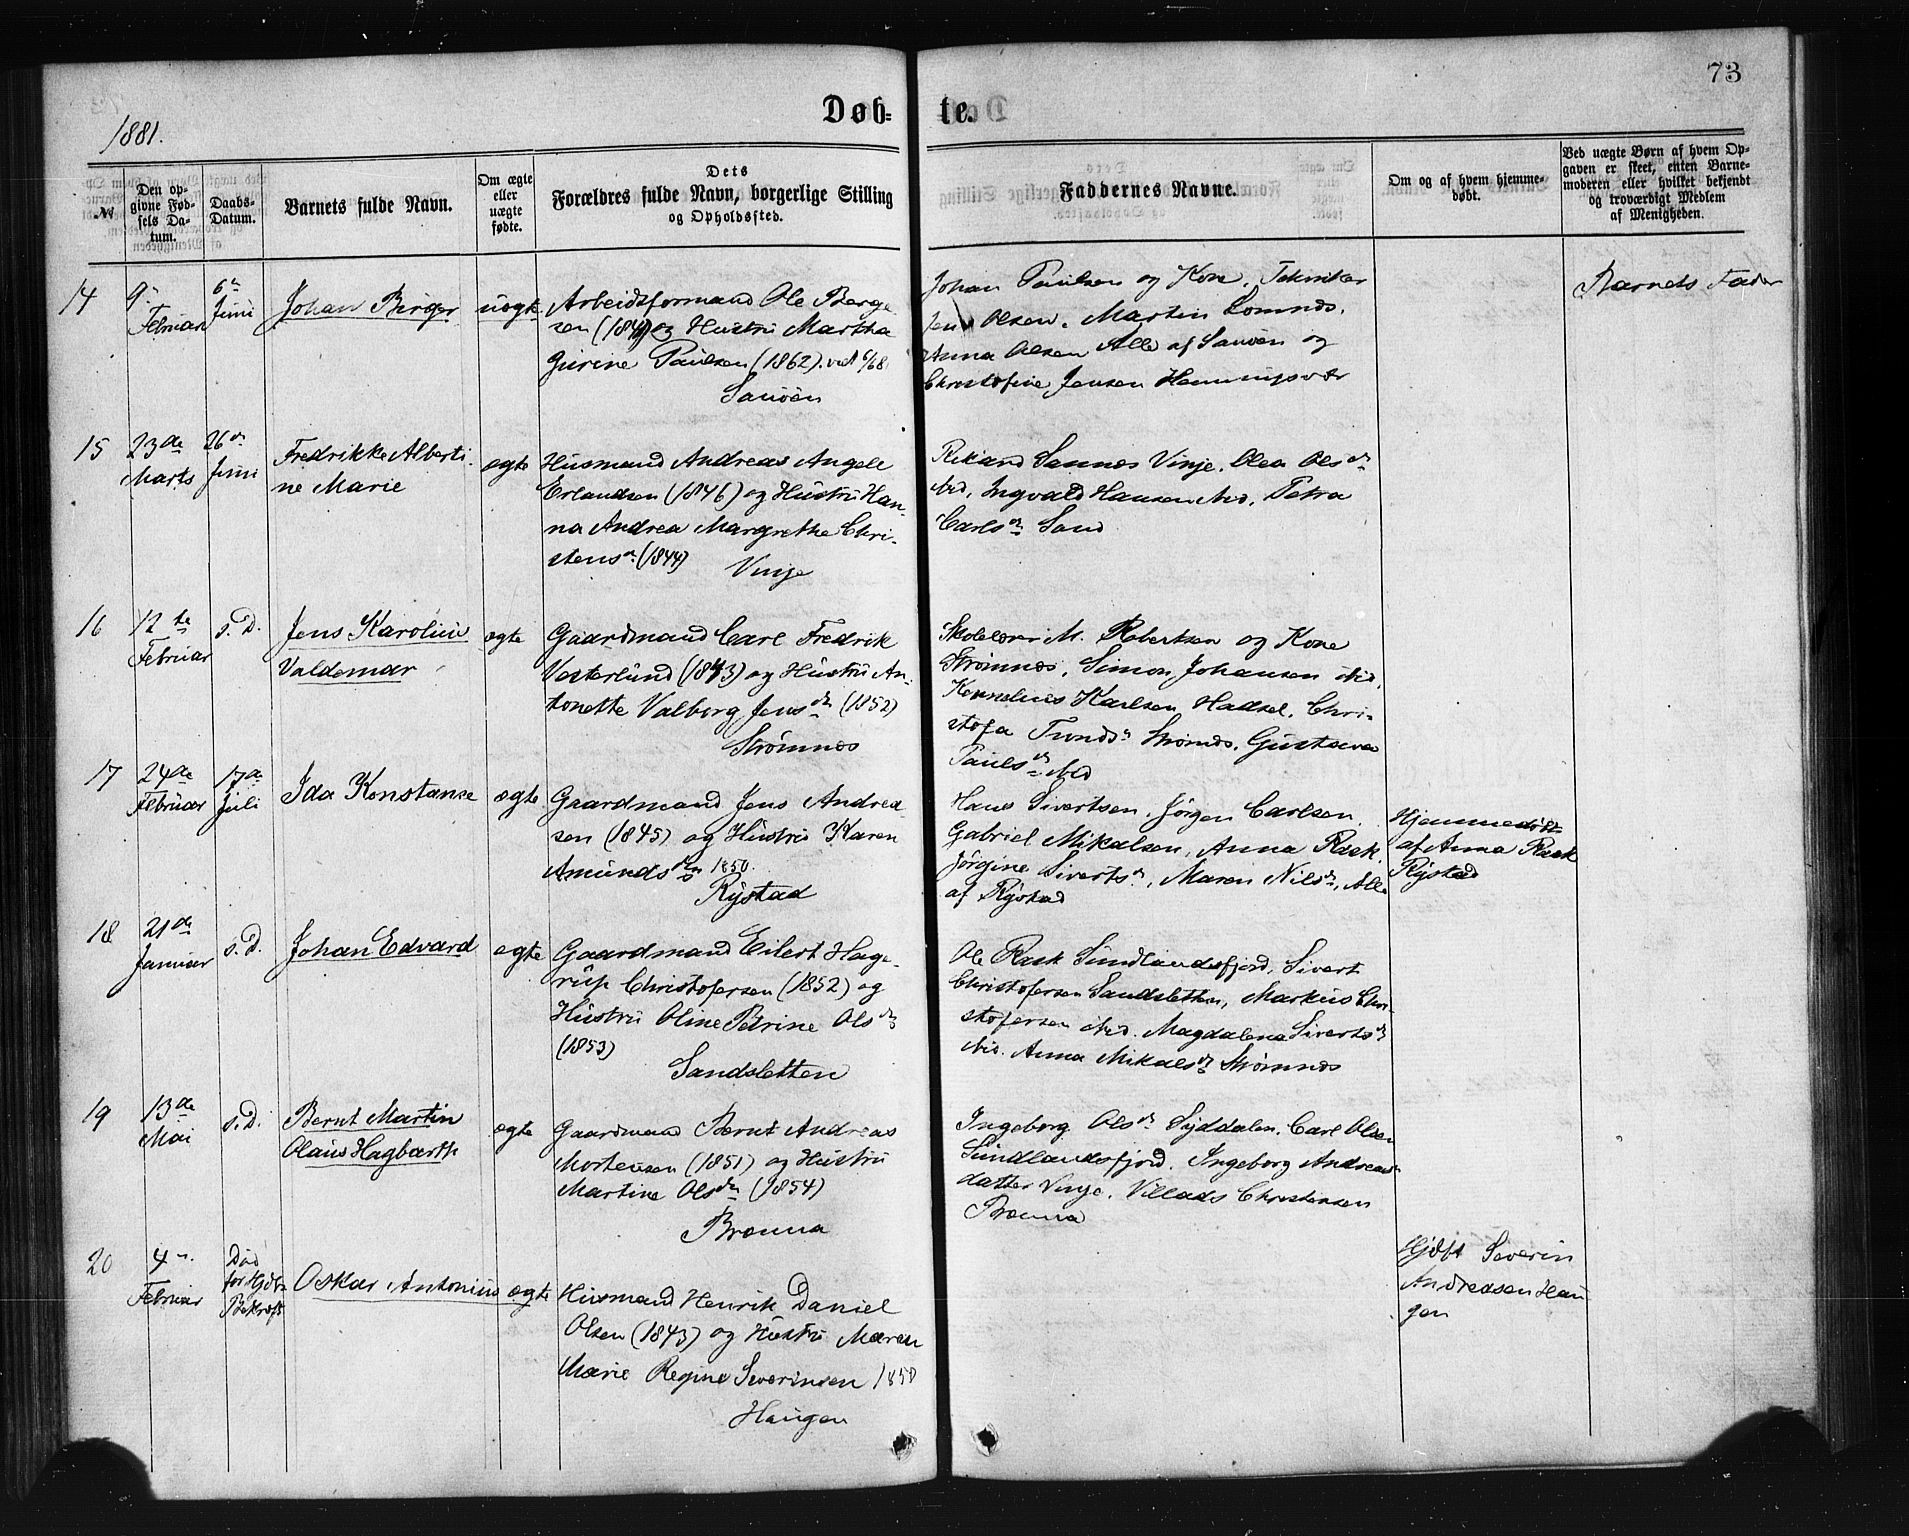 73
Døb-te.
1881.
№
Den opgivne Fødsels Datum.
Daabs-Datum.
Barnets fulde Navn.
Om ægte eller uægte fødte.
Dets
Forældres fulde Navn, borgerlige Stilling
og Opholdssted.
Faddernes Navne.
Om og af hvem hjemmedøbt.
Ved uægte Børn af hvem Opgaven er skeet, enten Barnemoderen eller hvilket bekjendt og troværdigt Medlem af Menigheden.
14
9.
Februar
6te
Juni
Johan Birger
uægte
Arbeidsformand Ole Berge-
sen og Hustru Martha
Gurine Paulsen (1862).
Sauøen
Johan Paulsen og Kone, Tekniker
Jens Olsen, Martin Lomnds,
Anna Olsen Alle af Sauøen og
Christofine Jensen Henningsvær
Barnets Fader
15
23de
Marts
26de
Juni
Fredrikke Alberti-
ne Marie
ægte
Husmand Andreas Angell
Erlandsen (1846) og Hustru Han-
na Andrea Margrethe Chri-
stensdr (1844)
Vinje
Rikard Sannes Vinje, Olea Olsdr
ibid, Ingvald Hansen ibid, Petra
Carlsdr Sand
16
12te
Februar
s. D.
Jens Karolius
Valdemar
ægte
Gaardmand Carl Fredrik
Vesterlund (1843) og Hustru An-
tonette Valborg Jensdr (1852)
Strømnes
Skolelærer M. Robertsen og Kone
Strømnes, Simon Johansen ibid,
Kornelius Karlsen Hadsel, Chri-
stofa Strømnes, Gustava
Paulsdr ibid
17
24de
Februar
17de
Juli
Ida Konstanse
ægte
Gaardmand Jens Andrea-
sen (1845) og Hustru Karen
Amundsdtr 1850.
Rystad
Hans Sivertsen, Jørgen Carlsen,
Gabriel Mikalsen, Anna Rask,
Jørgine Sivertsdr, Maren Nilsdr, Alle
af Rystad
Hjemmedøbt
af Anna Rask
Rystad
18
21de
Januar
s. D.
Johan Edvard
ægte
Gaardmand Eilert Hage-
rup Christofersen (1852) og
Hustru Oline Petrine Olsdr
(1853)
Sandsletten
Ole Rask Sundlandsfjord, Sivert
Christofersen Sandsletten, Markus Chri-
stofersen ibid. Magdalena Sivertsdr
ibid. Anna Mikalsdr Strømnes
19
13de
Mai
s. D.
Bernt Martin
Olaus Hagbarth
ægte
Gaardmand Bernt Andreas
Mortensen (1851) og Hustru
Martine Olsdtr (1854)
Brænna
Ingeborg Olsdr Syddalen, Carl Olsen
Sundlandsfjord, Ingeborg Andreas-
datter Vinje, Villads Christensen
Brænna
20
4de
Februar
Død
før Hjdb.
Bekræft
Oskar Antonius
ægte
Husmand Henrik Daniel
Olsen (1843) og Hustru Maren
Marie Regine Severinsen 1850
Haugen
Hjdbt Severin
Andreasen Hau-
gen